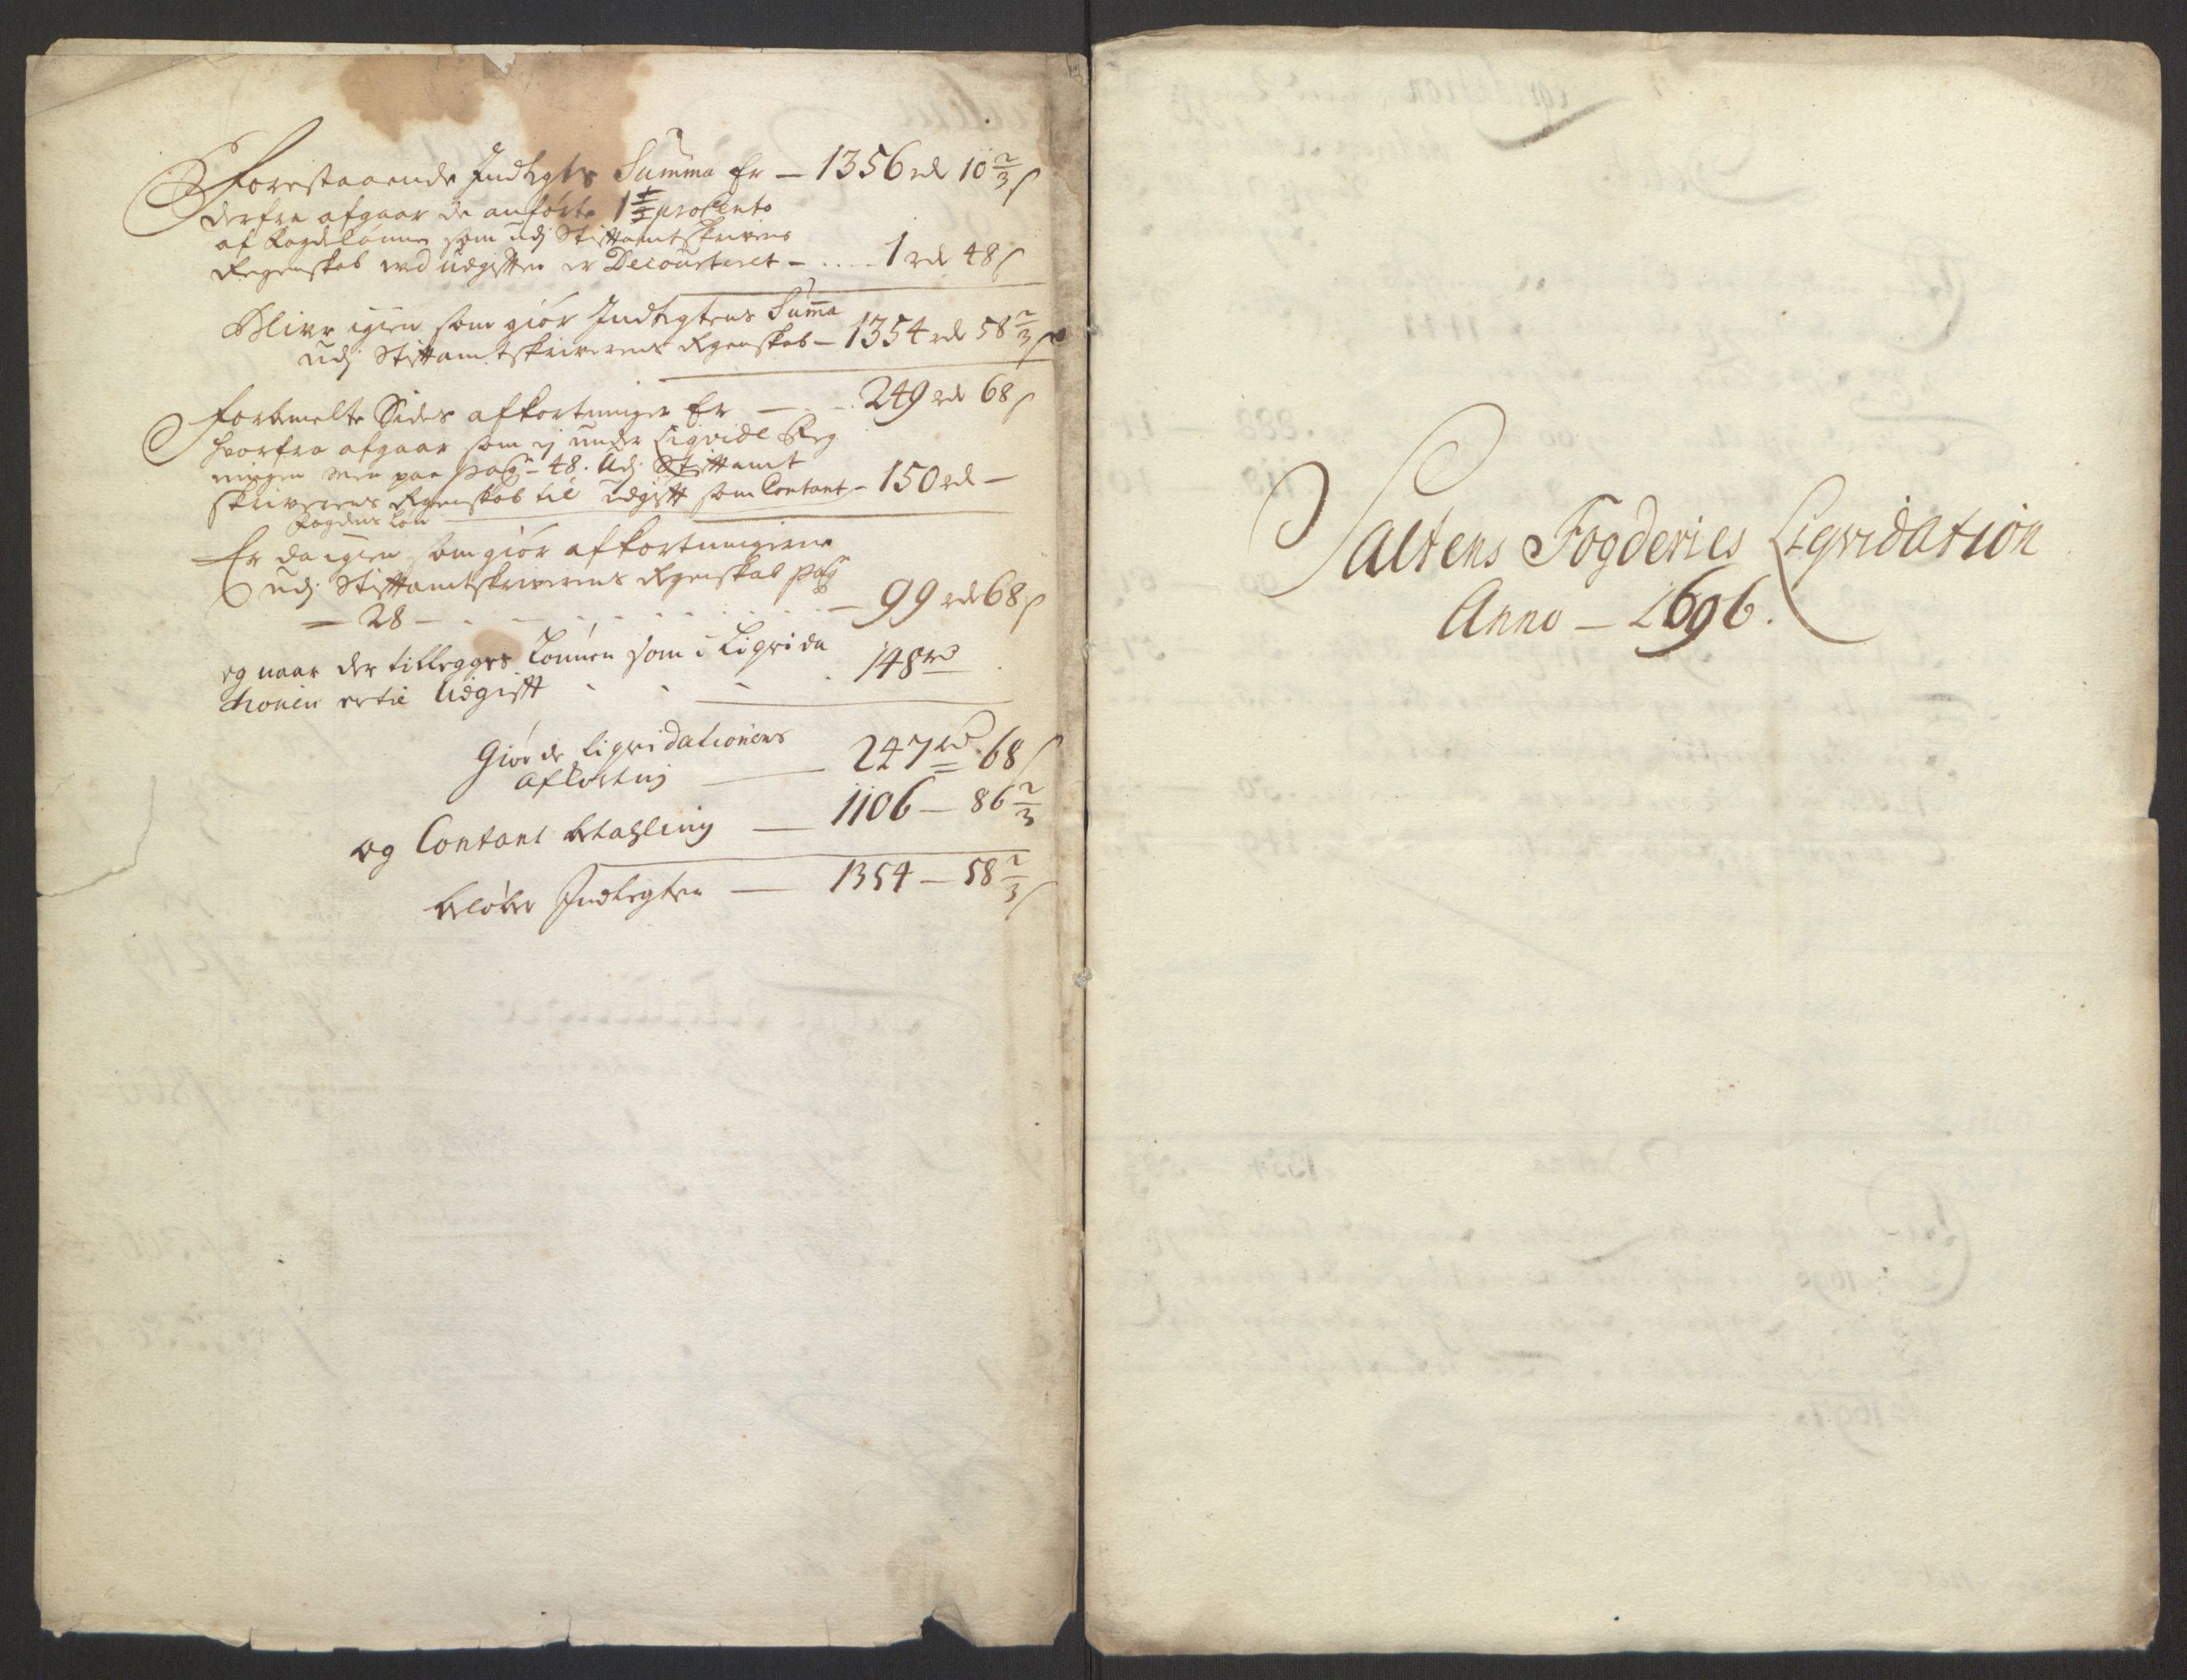 Forestaaende Indtegts Summa Er — 1356 rdr 10 2/3 ß
derfra afgaar de anførte 1 1/2 procento
af Fogdelønnen som udj Stiftamtskrivens
Regenskab ved udgiften er Decourteret — .... 1 rdr 48 ß
Bliver igien som giør Indtegtens Summa
udj Stiftamtskriverens Regenskab — 1354 rdr 58 2/3 ß
Forbemelte Sides afkortninger Er — . — . 249 rdr 68 ß
hvorfra afgaar som ej under Liqvide Reg
ningen men paa pag: 48. Udj Stiftamt
skriverens Regenskab til udgift som Contant — 150 rdr —
Fogdens Løn
Er da igien som giør afkortningerne
udj Stiftamtskriverens Regenskab pag
— 28 — . . — . . . . . — 99 rdr 68 ß
og naar der tillegges Lønnen som i Liqvida
tionen er til Udgift . . — . 148 rd
Giør de Liqvidationens
afkortnig — 247 rd 68 ß
og Contant betahling — 1106 — 86 2/3
beløber Indtegten — 1354 — 58 2/3 ß
Saltens Fogderies Liqvidation
Anno — 1696.